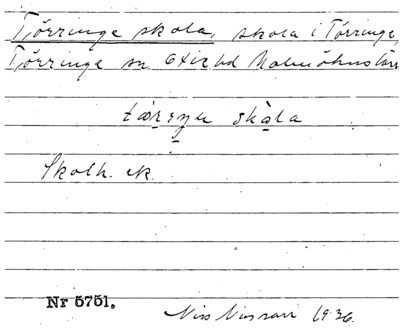 Törringe skola, skola i Törringe,
Törringe sn Oxie hd Malmöhus län
skåla
Skolh. ek.
Nr 5751.
Nils Nilsson 1936.